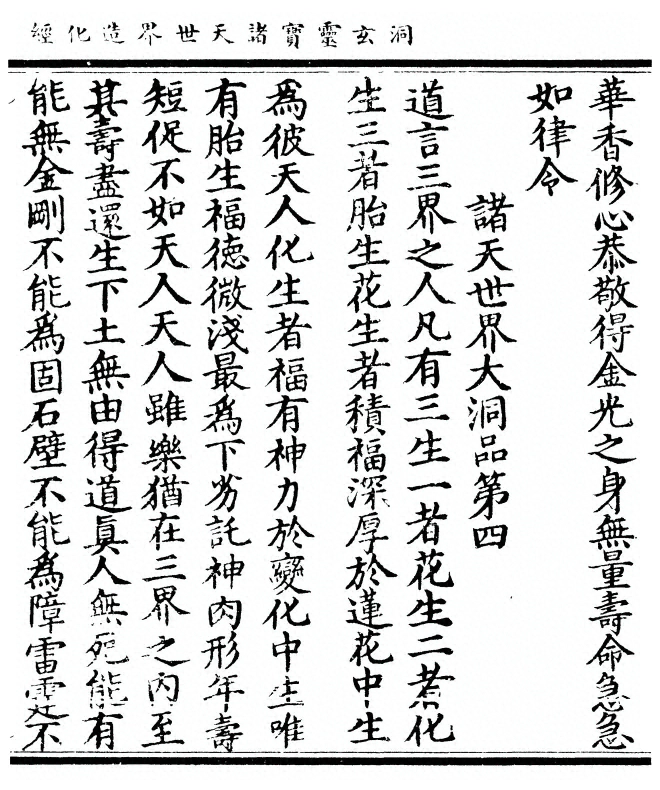 洞玄靈寶諸天世界造化經
華香修心恭敬得金光之身無量壽命急急
如律令
諸天世界大洞品第四
道言三界之人凡有三生一者花生二者化
生三者胎生花生者積福深厚於蓮花中生
為彼天人化生者福有神力於變化中生唯
有胎生福德微淺最為下劣託神肉形年壽
短促不如天人天人雖樂猶在三界之內至
其壽盡還生下土無由得道真人無死能有
能無金剛不能為固石壁不能為障雷霆不